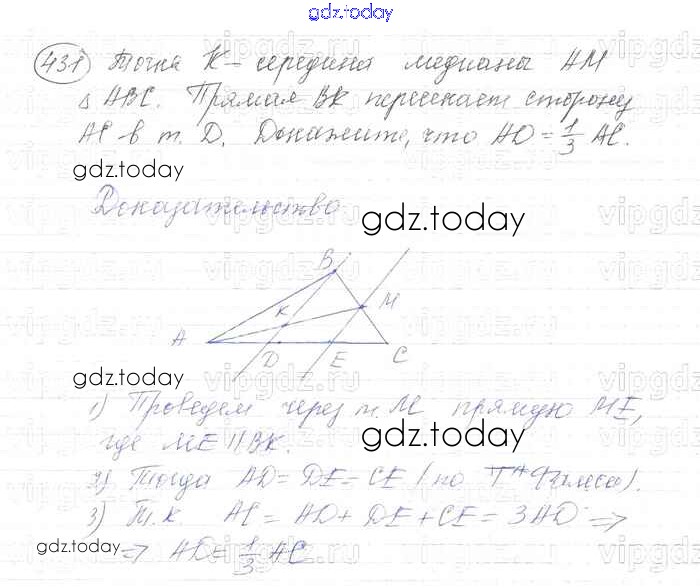 gdz.today
431 Точка К – середина медианы АМ
Δ АВС. Прямая ВК пересекает сторону
АС в т. D. Докажите, что AD = 1/3 АС.
gdz.today
Доказательство
gdz.today
B
K
M
A
D
E
C
gdz.today
1) Проведем через т. М прямую МЕ,
где МЕ || ВК.
gdz.today
2) Тогда AD = DE = CE (по Т. Фалеса).
3) Т.к. АС = AD + DE + CE = 3AD ⇒
gdz.today
⇒ AD = 1/3 АС